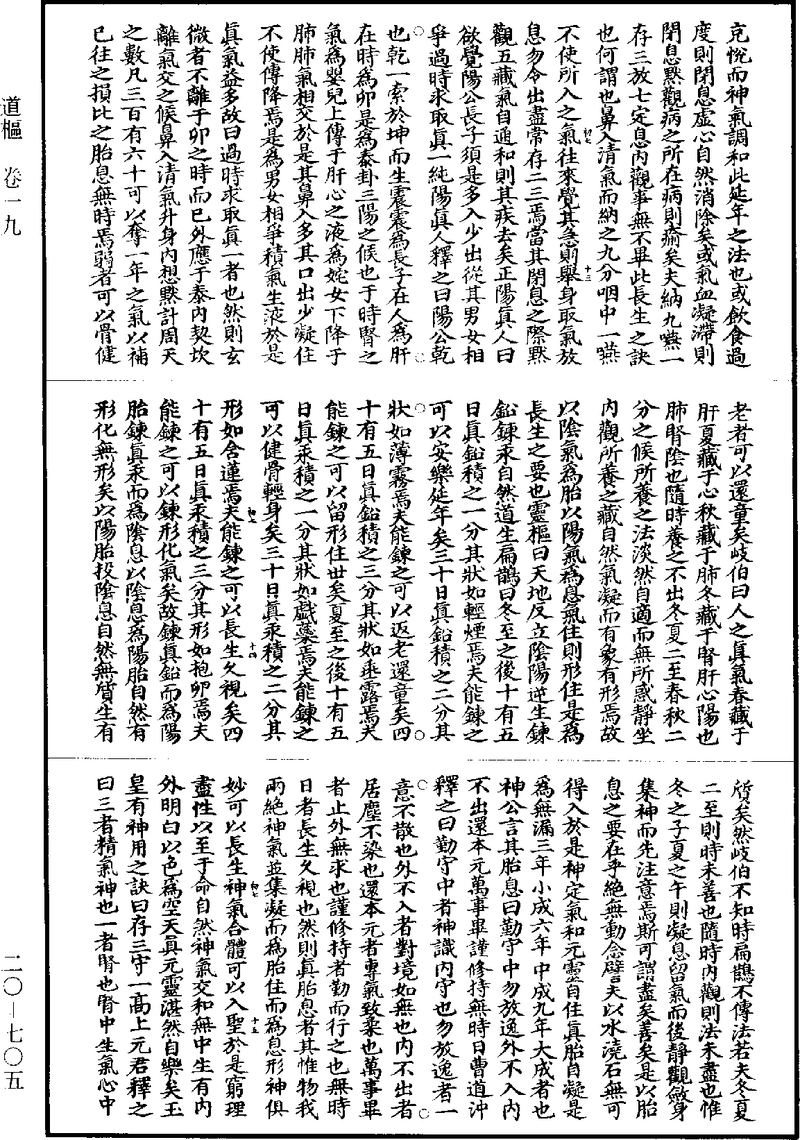 道樞 卷一九
二〇—七〇五
充悅而神氣調和此延年之法也或飲食過
度則閉息虛心自然消除矣或氣血凝滯則
閉息黙觀病之所在病則瘉矣夫納九嚥一
存三放七定息內觀事無不畢此長生之訣
也何謂也鼻入清氣而納之九分咽中一嚥
不使所入之氣往來覺其急則舉身取氣放
息勿令出盡常存二三焉當其閉息之際黙
觀五藏氣自通和則其疾去矣正陽真人曰
欲覺陽公長子須是多入少出從其男女相
爭過時求取真一純陽真人釋之曰陽公乾
也乾一索於坤而生震震為長子在人為肝
在時為卯是為泰卦三陽之候也于時腎之
氣為嬰兒上傳于肝心之液為姹女下降于
肺肺氣相交於是其鼻入多其口出少凝住
不使傳降焉是為男女相爭積氣生液於是
真氣益多故曰過時求取真一者也然則玄
微者不離于卯之時而已外應于泰內契坎
離氣交之候鼻入清氣升身內想黙計周天
之數凡三百有六十可以奪一年之氣以補
已往之損比之胎息無時焉弱者可以骨健
老者可以還童矣岐伯曰人之真氣春藏于
肝夏藏于心秋藏于肺冬藏于腎肝心陽也
肺腎陰也隨時養之不出冬夏二至春秋二
分之候所養之法淡然自適而無所感靜坐
內觀所養之藏自然氣凝而有象有形焉故
以陰氣為胎以陽氣為息氣住則形住是為
長生之要也靈樞曰天地反立陰陽逆生鍊
鉛鍊汞自然道生扁鵲曰冬至之後十有五
日真鉛積之一分其狀如輕煙焉夫能鍊之
可以安樂延年矣三十日真鉛積之二分其
狀如薄霧焉夫能鍊之可以返老還童矣四
十有五日真鉛積之三分其狀如垂露焉夫
能鍊之可以留形住世矣夏至之後十有五
日真汞積之一分其狀如戲蘂焉夫能鍊之
可以健骨輕身矣三十日真汞積之二分其
形如含蓮焉夫能鍊之可以長生久視矣四
十有五日真汞積之三分其形如抱卵焉夫
能鍊之可以鍊形化氣矣故鍊真鉛而為陽
胎鍊真汞而為陰息以陰息為陽胎自然有
形化無形矣以陽胎投陰息自然無質生有
質矣然岐伯不知時扁鵲不傳法若夫冬夏
二至則時未善也隨時內觀則法未盡也惟
冬之子夏之午則凝息留氣而後靜觀斂身
集神而先注意焉斯可謂盡矣善矣是以胎
息之要在乎絕無動念譬夫以水澆石無可
得入於是神定氣和元靈自住真胎自凝是
為無漏三年小成六年中成九年大成者也
神公言其胎息曰勤守中勿放逸外不入內
不出還本元萬事畢謹修持無時日曹道沖
釋之曰勤守中者神識內守也勿放逸者一
意不散也外不入者對境如無也內不出者
居塵不染也還本元者專氣致柔也萬事畢
者止外無求也謹修持者勤而行之也無時
日者長生久視也然則真胎息者其惟物我
兩絕神氣並集凝而為胎住而為息形神俱
妙可以長生神氣合體可以入聖於是窮理
盡性以至于命自然神氣交和無中生有內
外明白以色為空天真元靈湛然自樂矣玉
皇有神用之訣曰存三守一高上元君釋之
曰三者精氣神也一者腎也腎中生氣心中